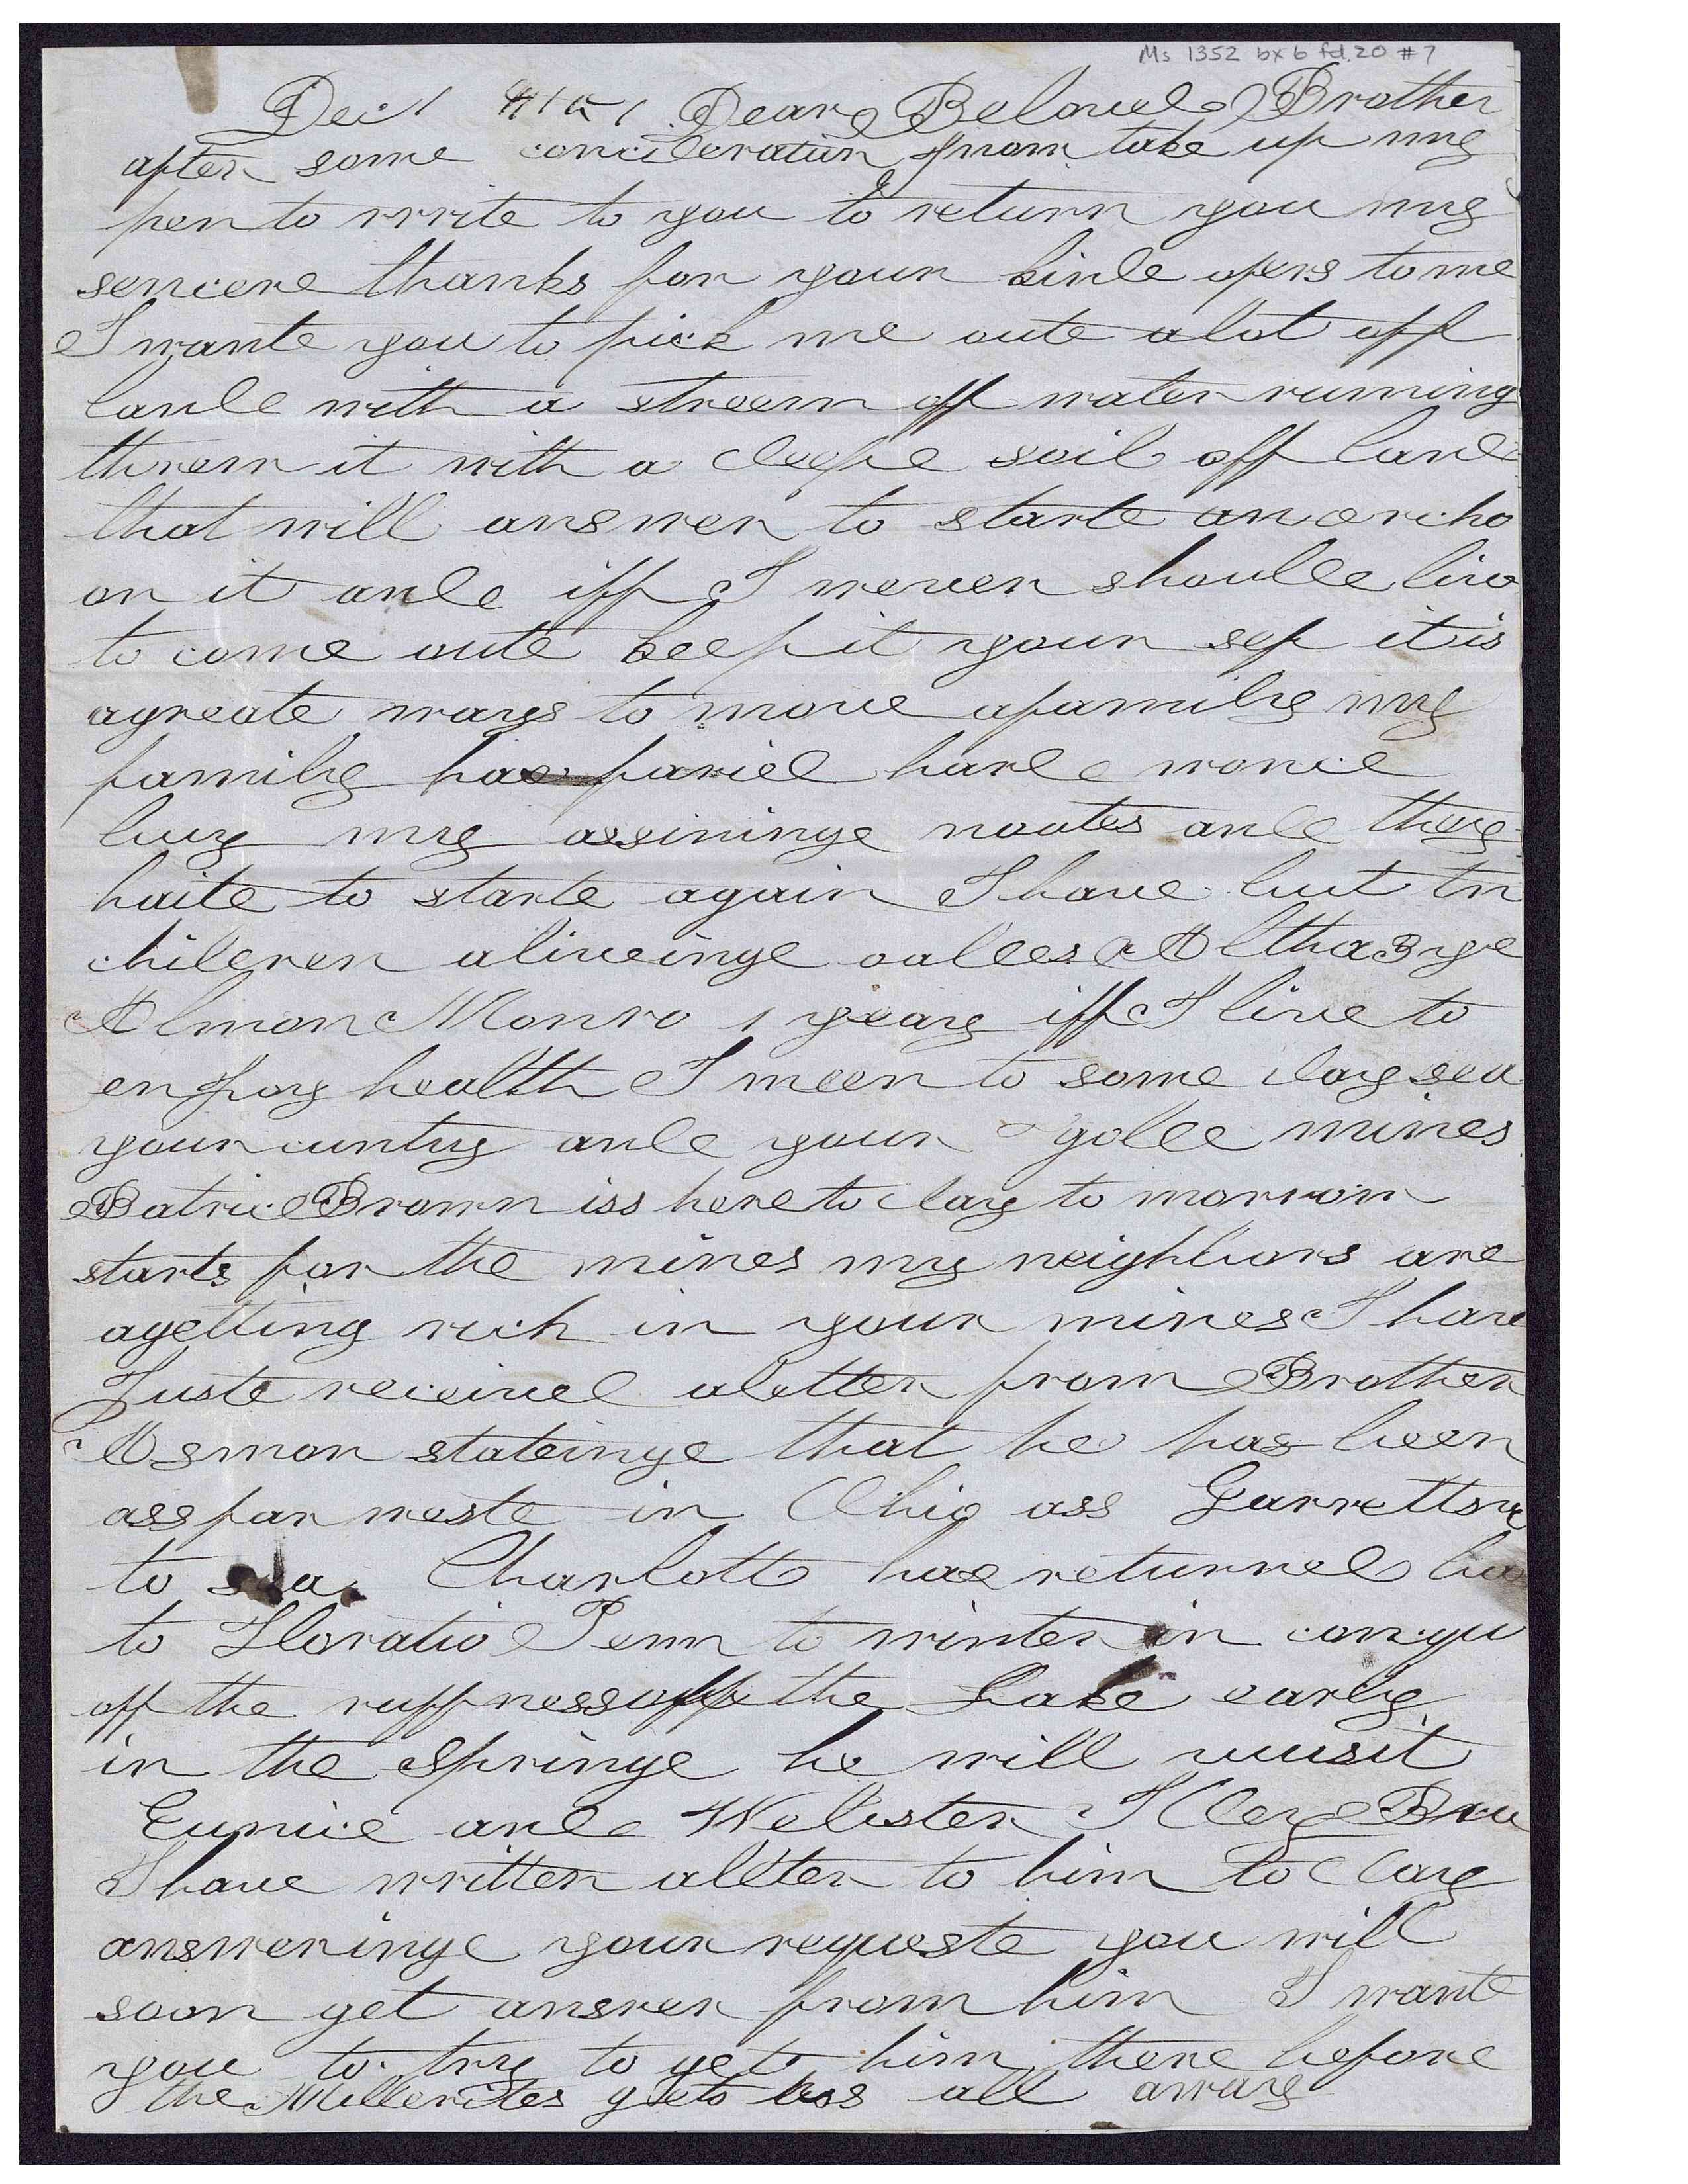 Ms 1352 bx 6 fd. 20 #7
Dec 1 Dear Beloved Brother
after some concideration I now take up my
pen to write to you to return you my
sencere thanks for your kinde ofers to me
I wante you to pick me oute a lot off
lande with a streem off water runing
threw it with a deepe soil off land
that will answer to starte an orcho
on it ande iff I never shoulde live
to come oute keep it your sef it is
agreate ways to move a family my
family has faried harde wonce
buy my assininge noates ande they
haite to starte again I have but tw
children aliveinge oaldes Altha 3 ye
Almon Monro 1 yeary iff I live to
enjoy health I meen to some day see
your cuntry ande your golde mines
Patric Brown iss here to day to morrow
starts for the mines my neighbors are
agetting rich in your mines I have
Juste received aletter from Brother
Asmon stateinge that he has been
ass far weste in Ohio ass Garrettsv
to Charlott has returned ba
to Horatio Penn to winter in conqu
off the ruffness off the Lake early
in the Springe he will vuisit
Eunice and Webster
I have written aletter to him to day
answeringe your requeste you will
soon get answer from him I wante
you to try to get him there before
the Millerites gets hos all away